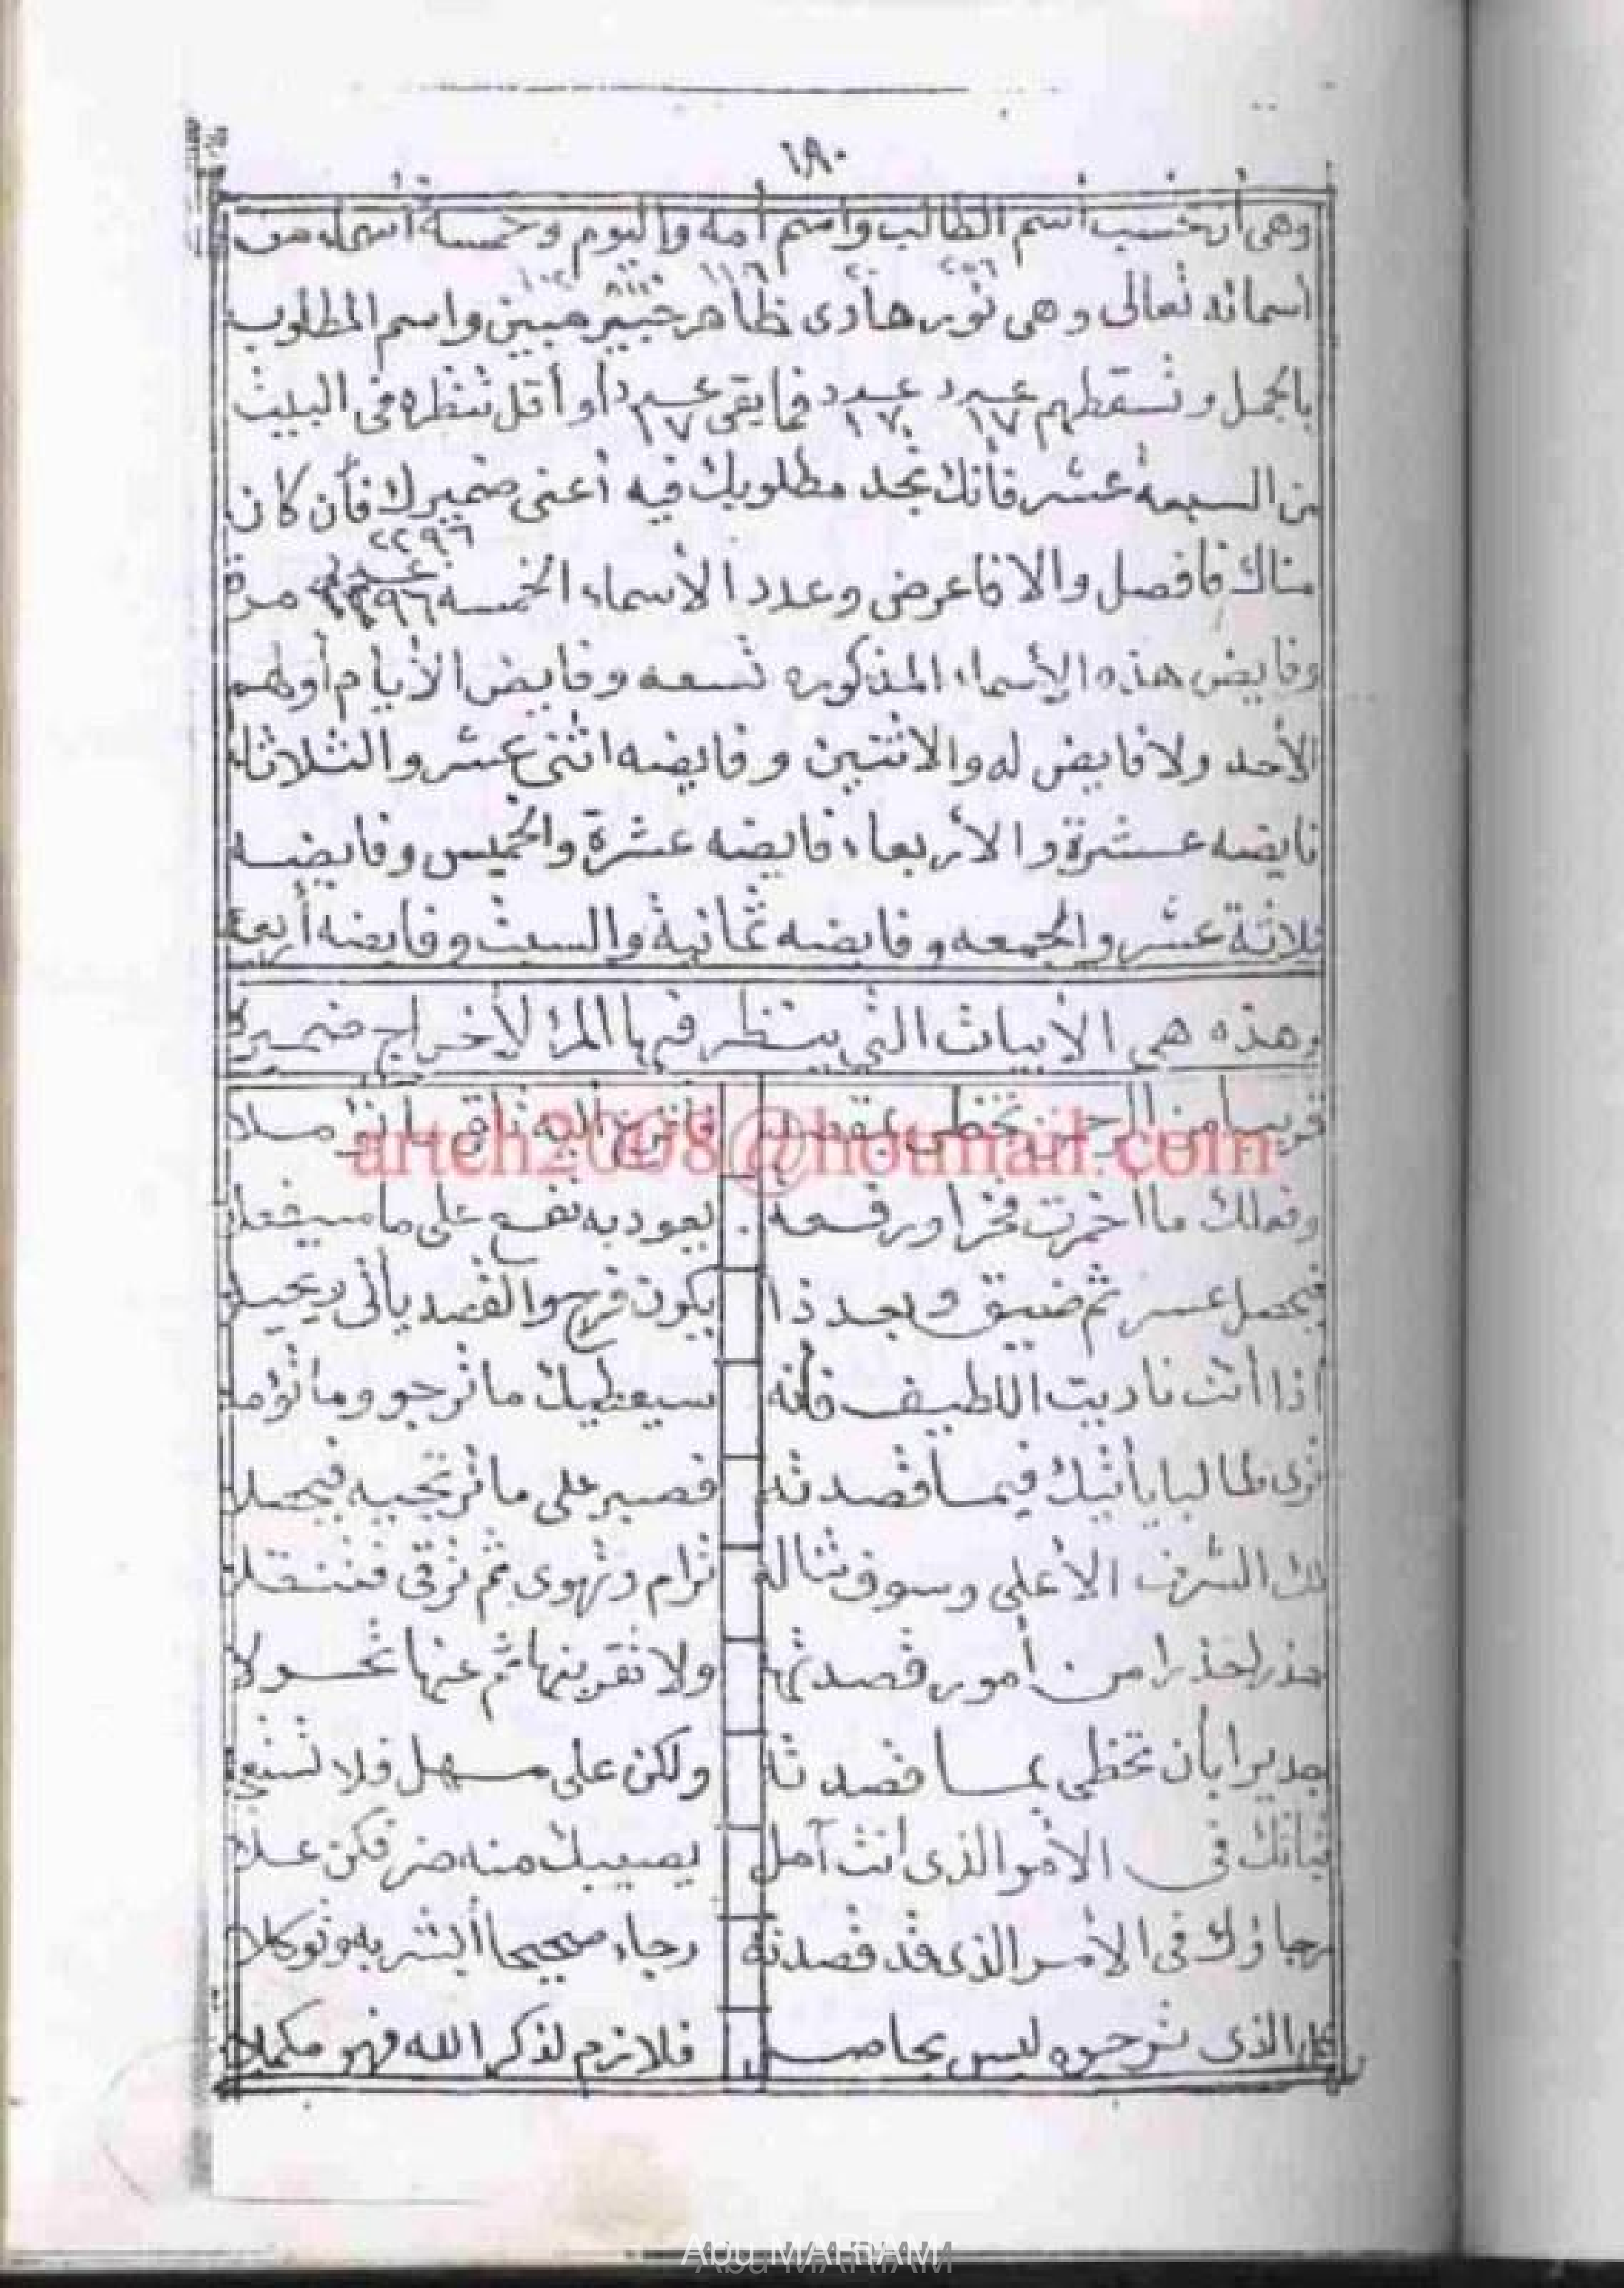 ١٨٠
وهى أن تحسب أسم الطالب واسم أمه واليوم وخمسة أسماء من
٢٥٦ ٢٠ ١١٠٦ ٨١٢ ١٠٢
أسمائه تعالى وهى نور هادى ظاهر خبير مبين واسم المطلوب
بالجمل وتسقطهم عدد ١٧ عدد ١٧ فما بقى عدد ١٧ أو أقل تنظره فى البيت
من السبعة عشر فأنك تجد مطلوبك فيه أعنى ضميرك فأن كان
٢٢٩٦
هناك فافصل والا فاعرض وعدد الأسماء الخمسة عدد ٢٢٩٦ مرة
وفايض هذه الأسماء المذكوره تسعه وفايض الأيام أولهم
الأحد ولا فايض له والاثنين وفايضه اثنى عشر والثلاثاء
فايضه عشرة والأربعاء فايضه عشرة والخميس وفايضه
ثلاثة عشر والجمعه وفايضه ثمانية والسبت وفايضه أربعة
وهذه هى الأبيات التى ينظر فيها المرء لأخراج ضميره
قريبا من تحظى
arteh2008@hotmail.com
وفعلك ما أخرت فخرا ورفعة يعود به نفع على ما سيفعلا
فيحصل عسر ثم ضيق وبعد ذا يكون فرج والقصد يأتى
اذا أنت ناديت اللطيف فأنه سيعطيك ما ترجو وما تؤملا
ترى طالبا يأتيك فيما قصدته فصبر على ما ترتجيه فيحصلا
لك الشرف الأعلى وسوف تناله ترام وتهوى ثم ترقى فتنقلا
حذرا حذرا من أمور قصدتها ولا تقربنها ثم عنها تحولا
جديرا بأن تحظى بما قصدته ولكن على مهل فلا
فى الأمر الذى أنت آمل يصيبك منه ضر فكن
رجاؤك فى الأمر الذى قد قصدته رجاء صحيحا أبشر به وتوكلا
الذى ترجوه ليس بحاصل فلازم لذكر الله فهو مكملا
Abu MARIAM